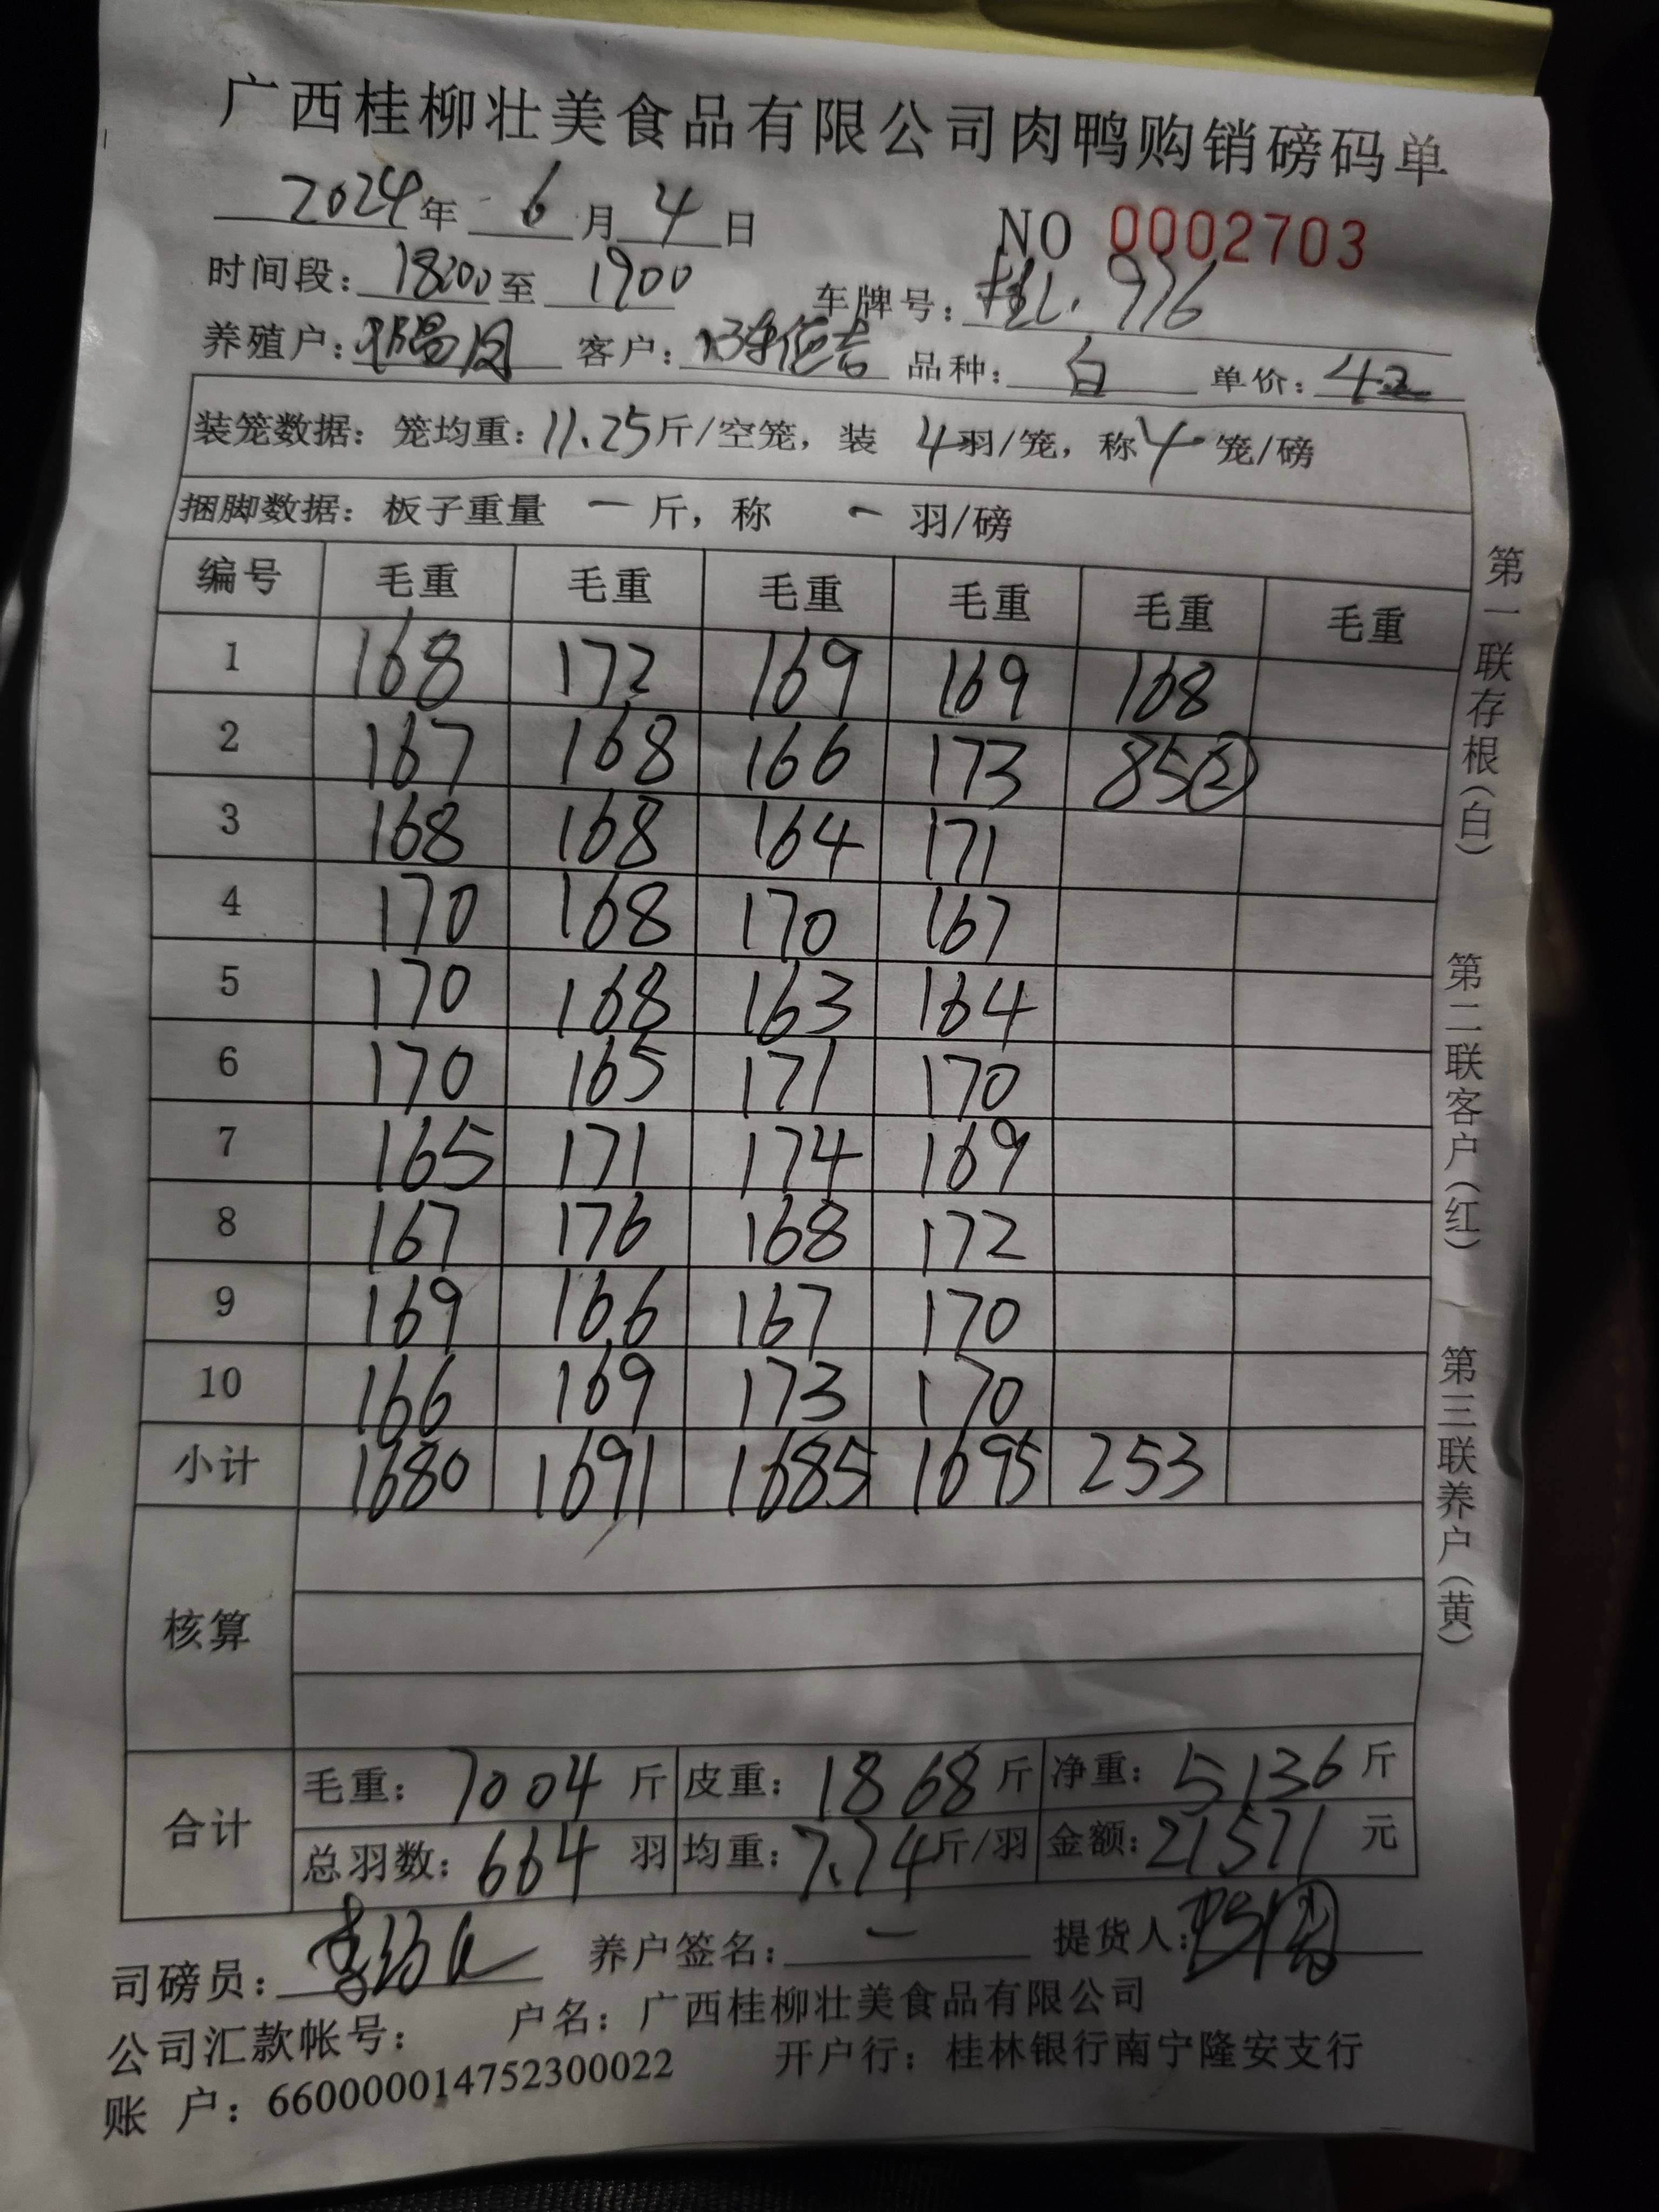 广西桂柳壮美食品有限公司肉鸭购销磅码单
2024年 6月 4日 NO 0002703
时间段: 18:00 至 1900 车牌号: 桂L. 976
养殖户: 客户: 品种: 白 单价: 42
装笼数据: 笼均重: 11.25斤/空笼, 装 4羽/笼, 称4笼/磅
捆脚数据: 板子重量 一 斤, 称 一 羽/磅
编号 毛重 毛重 毛重 毛重 毛重 毛重
1 168 172 169 169 168
2 167 168 166 173 85②
3 168 168 164 171
4 170 168 170 167
5 170 168 163 164
6 170 165 171 170
7 165 171 174 169
8 167 176 168 172
9 169 166 167 170
10 166 169 173 170
小计 1680 1691 1685 1695 253
核算
合计
毛重: 7004 斤 皮重: 1868 斤 净重: 5136 斤
总羽数: 664 羽 均重: 7.74斤/羽 金额: 21571 元
司磅员: 养户签名: 一 提货人:
公司汇款帐号: 户名: 广西桂柳壮美食品有限公司
账 户: 660000014752300022 开户行: 桂林银行南宁隆安支行
第一联存根(白)
第二联客户(红)
第三联养户(黄)